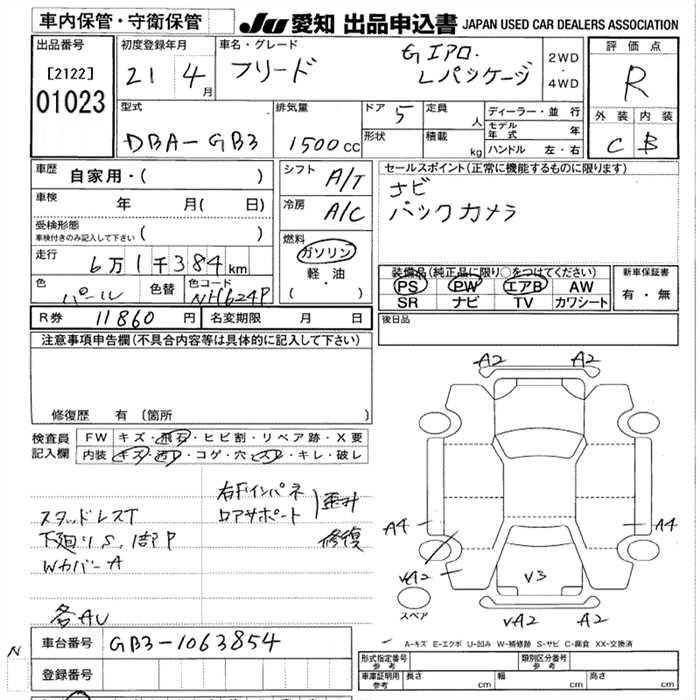 車内保管・守衛保管
JU 愛知 出品申込書 JAPAN USED CAR DEALERS ASSOCIATION
出品番号
[2122]
01023
初度登録年月
21 4 月
車名・グレード
フリード
Gエアロ.
Lパッケージ
2WD
・
4WD
評価点
R
外装 内装
C B
型式
DBA-GB3
排気量
1500 CC
ドア 5
形状
定員 人
積載 kg
ディーラー・並行
モデル年式 年
ハンドル 左・右
車歴
自家用・( )
車検 年 月( 日)
受検形態
車検付きのみ記入して下さい ( )
走行
6万1千384km
色 パール
色替
色コード NH624P
シフト A/T
冷房 A/C
燃料
ガソリン
軽・油
( ・ )
セールスポイント(正常に機能するものに限ります)
ナビ
バックカメラ
装備品(純正品に限り○をつけてください)
PS PW エアB AW
SR ナビ TV カワシート
新車保証書
有・無
R券 11860 円 名変期限 月 日
後日品
注意事項申告欄(不具合内容等は具体的に記入して下さい)
修復歴 有 〔箇所 〕
検査員
記入欄
FW キズ・飛石・ヒビ割・リペア跡・X要
内装 キズ・汚レ・コゲ・穴・スレ・キレ・破レ
右Fインパネ
ロアサポート
歪み
修復
スタッドレスT
下廻りS、1部P
WカバーA
各AU
A2 A2
A4 A4
vA2 V3
スペア
vA2 A2
A-キズ E-エクボ U-凹み W-補修跡 S-サビ C-腐食 XX-交換済
N
車台番号 GB3-1063854
登録番号
形式指定番号
参考
類別区分番号
参考
車庫証明用
参考
長さ cm 幅 cm 高さ cm